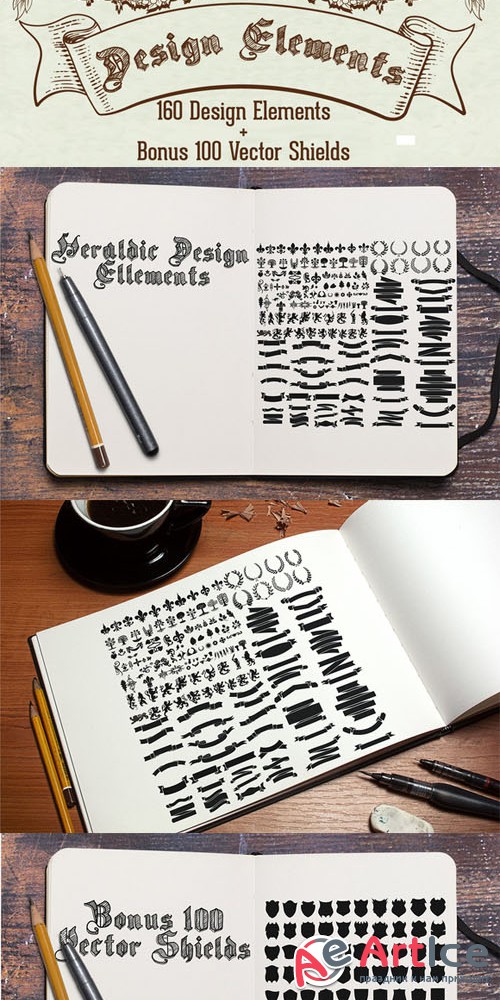 Design Elements
160 Design Elements
+
Bonus 100 Vector Shields
Heraldic Design
Ellements
Bonus 100
Vector Shields
Artice
праздник к нам при